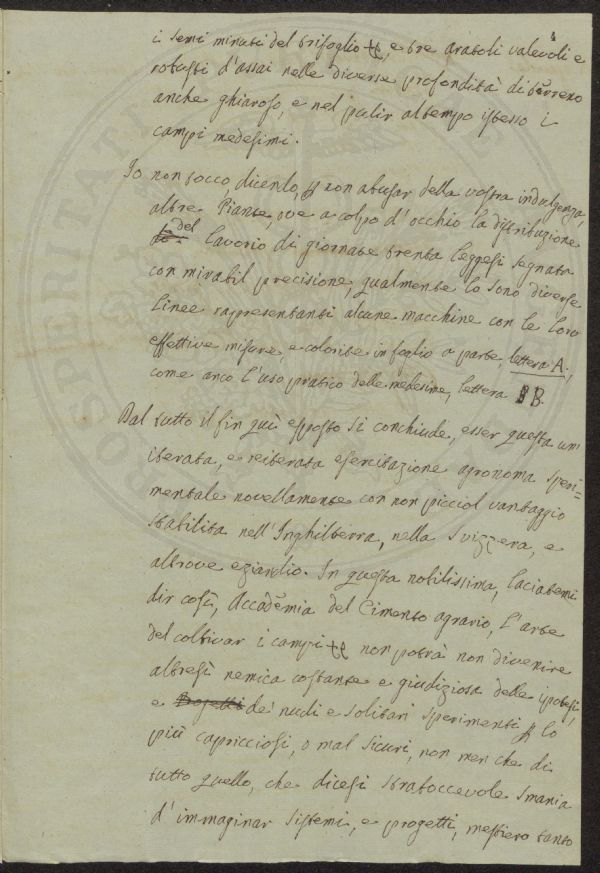 i semi minuti del trifoglio etc, e tre aratoli valevoli e
robusti d'assai nelle diverse profondità di terreno
anche ghiaroso, e nel pulir al tempo istesso i
campi medesimi.
Io non tocco, dicendo, p non abusar della vostra indulgenza,
altre Piante, ove a colpo d'occhio la distribuzione
del lavorio di giornate trenta leggesi segnata
con mirabil precisione, qualmente lo sono diverse
linee rappresentanti alcune macchine con le loro
effettive misure, e colorite in foglio a parte, lettera A.,
come anco l'uso pratico delle medesime, lettera B.
Dal tutto il fin quì esposto si conchiude, esser questa un'
iterata, e reiterata esercitazione agronoma speri=
mentale novellamente con non picciol vantaggio
stabilita nell'Inghilterra, nella Svizzera, e
altrove eziandio. In questa nobilissima, laciatemi
dir così, Accademia del Cimento agrario, l'arte
del coltivar i campi etc non potrà non divenire
altresì nemica costante e giudiziosa delle ipotesi,
e Progetti de' nudi e solitari sperimenti p lo
più capricciosi, o mal sicuri, non men che di
tutto quello, che dicesi straboccevole smania
d'immaginar sistemi, e progetti, mestiero tanto